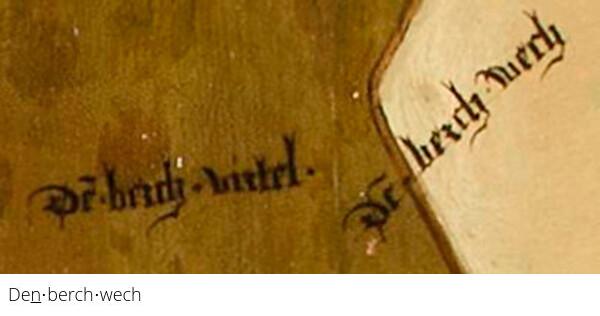 Dē·berch·virtel·
Dē·berch·wech
Den·berch·wech